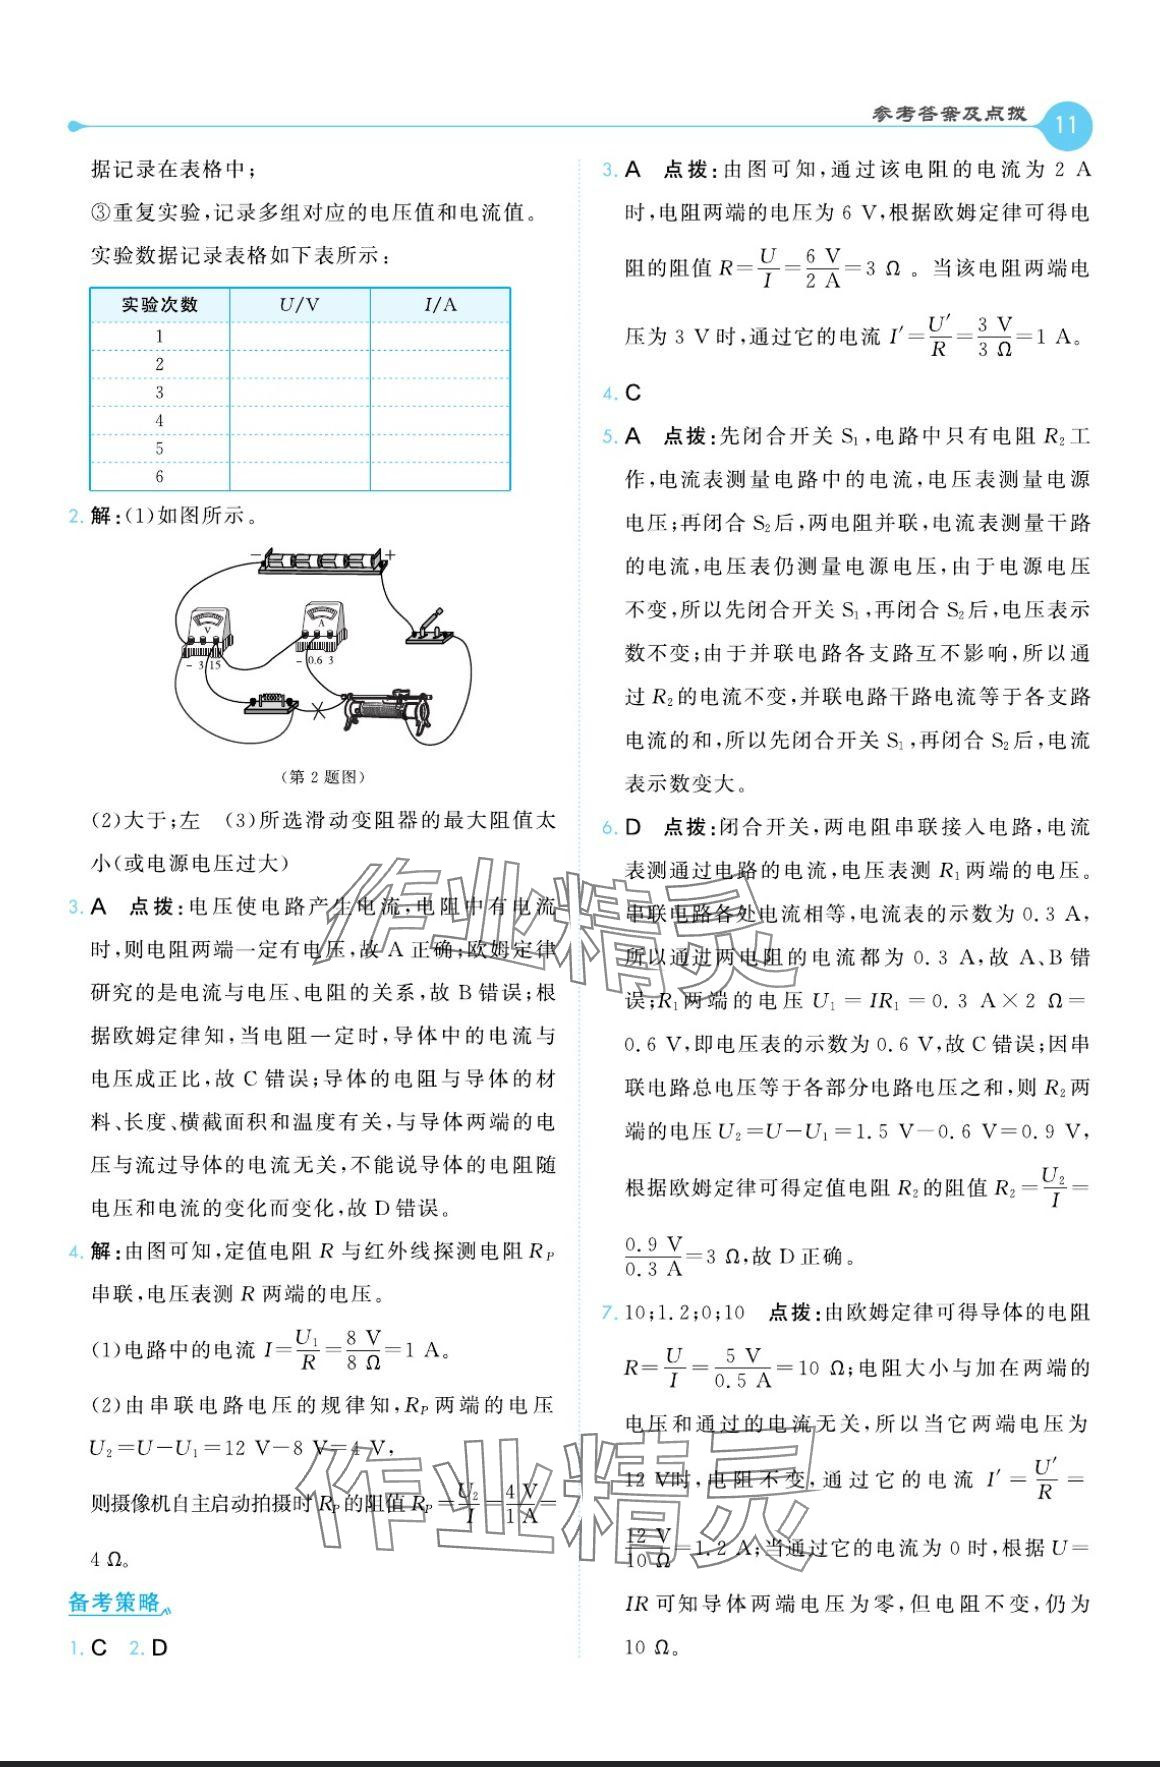 参考答案及点拨 11
据记录在表格中；
③重复实验，记录多组对应的电压值和电流值。
实验数据记录表格如下表所示：
实验次数 U/V I/A
1
2
3
4
5
6
2. 解：(1)如图所示。
− +
V A
− 3 15 − 0.6 3
(第 2 题图)
(2)大于；左 (3)所选滑动变阻器的最大阻值太
小(或电源电压过大)
3. A 点拨：电压使电路产生电流，电阻中有电流
时，则电阻两端一定有电压，故 A 正确；欧姆定律
研究的是电流与电压、电阻的关系，故 B 错误；根
据欧姆定律知，当电阻一定时，导体中的电流与
电压成正比，故 C 错误；导体的电阻与导体的材
料、长度、横截面积和温度有关，与导体两端的电
压与流过导体的电流无关，不能说导体的电阻随
电压和电流的变化而变化，故 D 错误。
4. 解：由图可知，定值电阻 R 与红外线探测电阻 R_P
串联，电压表测 R 两端的电压。
(1)电路中的电流 I=U₁/R=8 V/8 Ω=1 A。
(2)由串联电路电压的规律知，R_P 两端的电压
U₂=U−U₁=12 V−8 V=4 V，
则摄像机自主启动拍摄时 R_P 的阻值 R_P=U₂/I=4 V/1 A=
4 Ω。
备考策略
1. C 2. D
3. A 点拨：由图可知，通过该电阻的电流为 2 A
时，电阻两端的电压为 6 V，根据欧姆定律可得电
阻的阻值 R=U/I=6 V/2 A=3 Ω 。当该电阻两端电
压为 3 V 时，通过它的电流 I′=U′/R=3 V/3 Ω=1 A。
4. C
5. A 点拨：先闭合开关 S₁，电路中只有电阻 R₂ 工
作，电流表测量电路中的电流，电压表测量电源
电压；再闭合 S₂ 后，两电阻并联，电流表测量干路
的电流，电压表仍测量电源电压，由于电源电压
不变，所以先闭合开关 S₁，再闭合 S₂ 后，电压表示
数不变；由于并联电路各支路互不影响，所以通
过 R₂ 的电流不变，并联电路干路电流等于各支路
电流的和，所以先闭合开关 S₁，再闭合 S₂ 后，电流
表示数变大。
6. D 点拨：闭合开关，两电阻串联接入电路，电流
表测通过电路的电流，电压表测 R₁ 两端的电压。
串联电路各处电流相等，电流表的示数为 0.3 A，
所以通过两电阻的电流都为 0.3 A，故 A、B 错
误；R₁ 两端的电压 U₁=IR₁=0.3 A×2 Ω=
0.6 V，即电压表的示数为 0.6 V，故 C 错误；因串
联电路总电压等于各部分电路电压之和，则 R₂ 两
端的电压 U₂=U−U₁=1.5 V−0.6 V=0.9 V，
根据欧姆定律可得定值电阻 R₂ 的阻值 R₂=U₂/I=
0.9 V/0.3 A=3 Ω，故 D 正确。
7. 10；1.2；0；10 点拨：由欧姆定律可得导体的电阻
R=U/I=5 V/0.5 A=10 Ω；电阻大小与加在两端的
电压和通过的电流无关，所以当它两端电压为
12 V时，电阻不变，通过它的电流 I′=U′/R=
12 V/10 Ω=1.2 A；当通过它的电流为 0 时，根据 U=
IR 可知导体两端电压为零，但电阻不变，仍为
10 Ω。
作业精灵
作业精灵